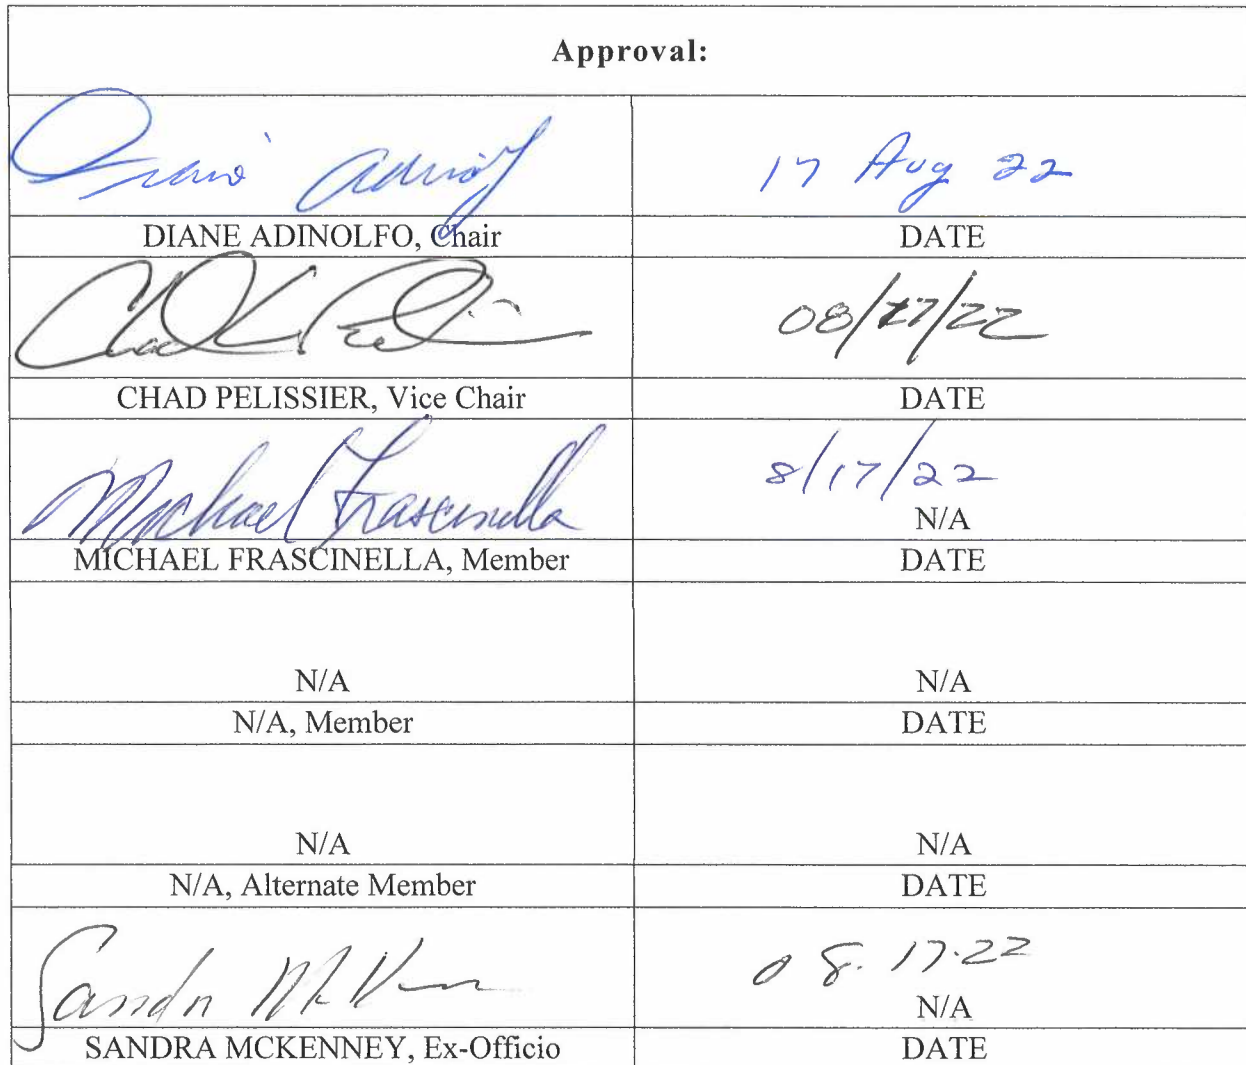 Approval:
Diane Adinolfo 17 Aug 22
DIANE ADINOLFO, Chair DATE
Chad Pelissier 08/17/22
CHAD PELISSIER, Vice Chair DATE
Michael Frascinella 8/17/22
N/A
MICHAEL FRASCINELLA, Member DATE
N/A N/A
N/A, Member DATE
N/A N/A
N/A, Alternate Member DATE
Sandra McKenney 08.17.22
N/A
SANDRA MCKENNEY, Ex-Officio DATE